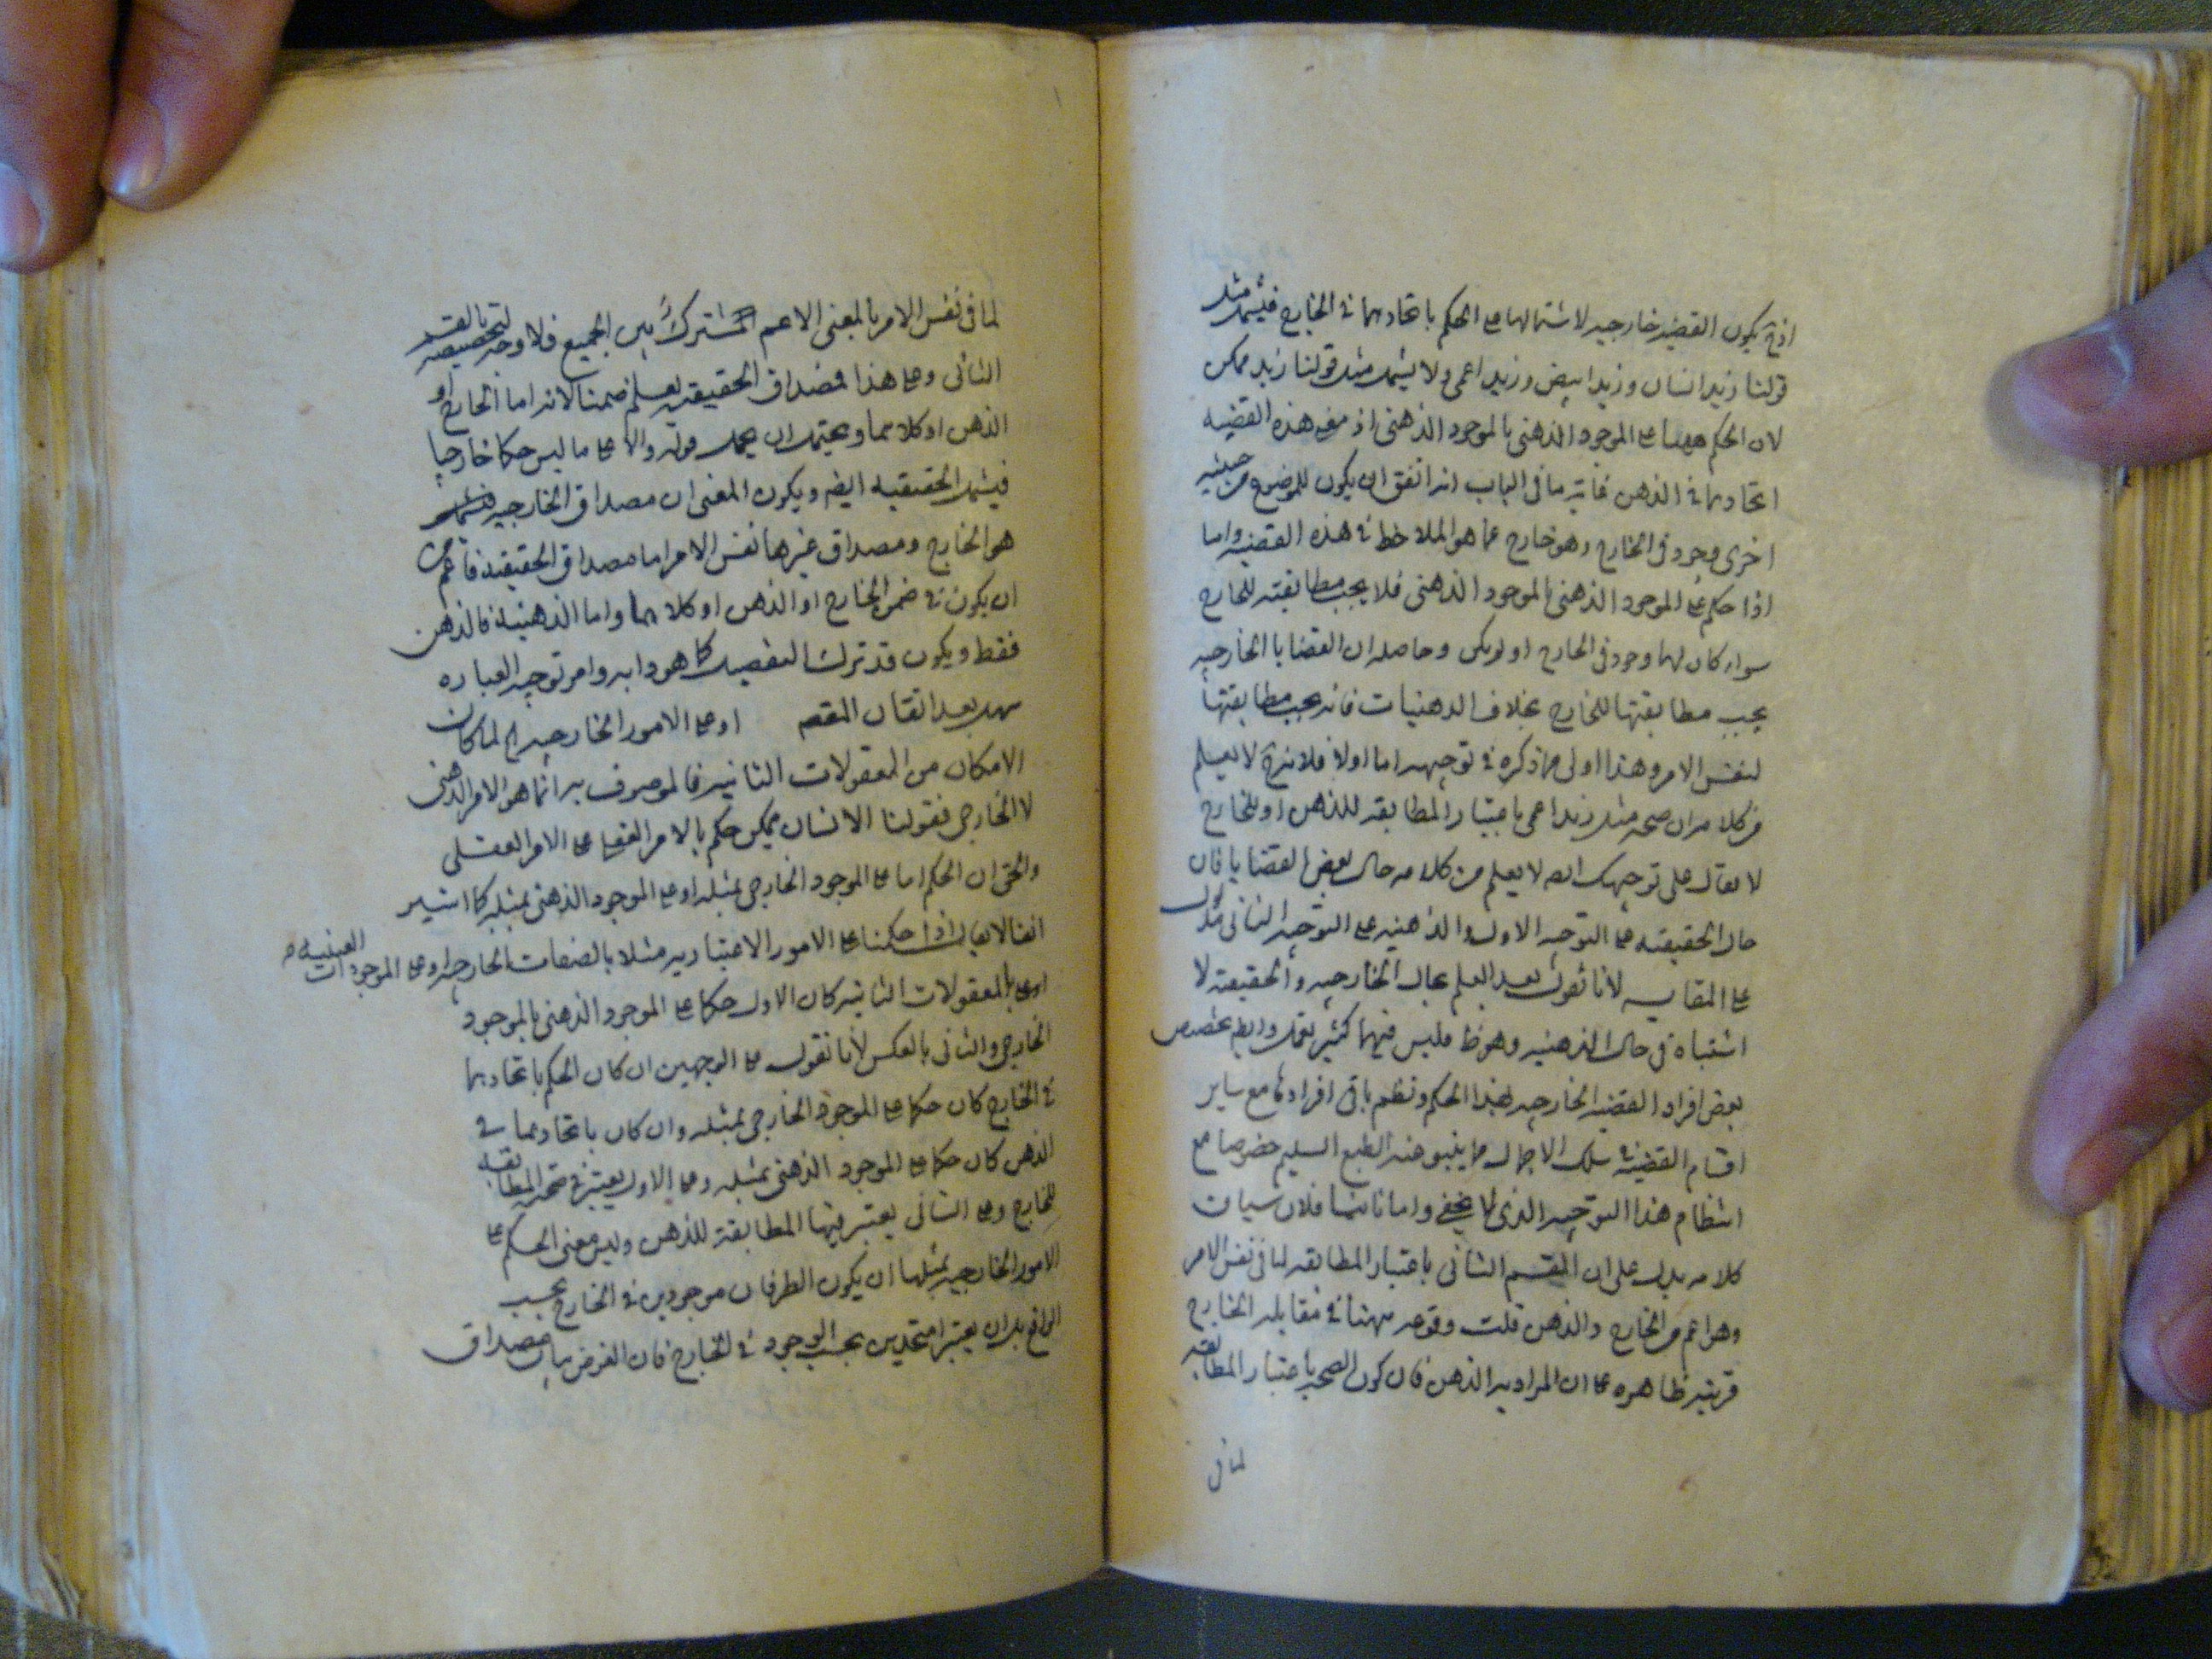 اذ ح يكون القضيه خارجيه لاشتمالها على الحكم باتحادهما فى الخارج فيشمل مثل
قولنا زيد انسان وزيد ابيض وزيد اعمى ولا يشمل مثل قولنا زيد ممكن
لان الحكم ههنا على الموجود الذهنى بالموجود الذهنى اذ معنى هذه القضيه
اتحادهما فى الذهن غايته ما فى الباب انه اتفق ان يكون للموضوع من حيثيه
اخرى وجود فى الخارج وهو خارج عما هو الملاحظ فى هذه القضيه واما
اذا حكم على الموجود الذهنى بالموجود الذهنى فلا يجب مطابقته للخارج
سواء كان لهما وجود فى الخارج او لم يكن وحاصله ان القضايا الخارجيه
يجب مطابقتها للخارج بخلاف الذهنيات فانه يجب مطابقتها
لنفس الامر وهذا اولى مما ذكره فى توجيهه اما اولا فلانه ح لا يعلم
من كلامه ان صحه مثل زيد اعمى باعتبار المطابقه للذهن او للخارج
لا يقال على توجيهك ايضا لا يعلم من كلامه حال بعض القضايا فان
حال الحقيقيه على التوجيه الاول والذهنيه على التوجيه الثانى متروك
على المقايسه لانا نقول بعد العلم بحال الخارجيه والحقيقيه لا
اشتباه فى حال الذهنيه وهو ظ فليس فيهما كثير تمحل وايضا تخصيص
بعض افراد القضيه الخارجيه بهذا الحكم ونظم باقى افرادها مع ساير
اقسام القضيه فى سلك الاجمال مما ينبو عنه الطبع السليم خصوصا مع
انتظام هذا التوجيه الذى لا يخفى واما ثانيا فلان سياق
كلامه يدل على ان القسم الثانى باعتبار المطابقه لما فى نفس الامر
وهو اعم من الخارج والذهن قلت وقوعه ههنا فى مقابله الخارج
قرينه ظاهره على ان المراد به الذهن فان كون الصحه باعتبار المطابقه
لما فى
لما فى نفس الامر بالمعنى الاعم المشترك بين الجميع فلا وجه لتخصيصه بالقسم
الثانى وعلى هذا فمصداق الحقيقيه يعلم ضمنا لانه اما الخارج او
الذهن او كلاهما ويحتمل ان يحمل قوله والا على ما ليس حكما خارجيا
فيشمل الحقيقيه ايضا ويكون المعنى ان مصداق الخارجيه
هو الخارج ومصداق غيرها نفس الامر اما مصداق الحقيقيه فاعم من
ان يكون فى ضمن الخارج او الذهن او كلاهما واما الذهنيه فالذهن
فقط ويكون قد ترك التفصيل كما هو دابه وامر توجيه العباره
سهل بعد اتقان المقصد او على الامور الخارجيه الخ لما كان
الامكان من المعقولات الثانيه فالموصوف به انما هو الامر الذهنى
لا الخارجى فقولنا الانسان ممكن حكم بالامر العقلى على الامر العقلى
والحق ان الحكم اما على الموجود الخارجى بمثله او على الموجود الذهنى بمثله كما اشير
انفا لا يقال اذا حكمنا على الامور الاعتباريه مثلا بالصفات الخارجيه او على الموجودات العينيه
بالمعقولات الثانيه كان الاول حكما على الموجود الذهنى بالموجود
الخارجى والثانى بالعكس لانا نقول على الوجهين ان كان الحكم باتحادهما
فى الخارج كان حكما على الموجود الخارجى بمثله وان كان باتحادهما فى
الذهن كان حكما على الموجود الذهنى بمثله وعلى الاول يعتبر فى صحته المطابقه
للخارج وعلى الثانى يعتبر فيها المطابقه للذهن وليس معنى الحكم على
الامور الخارجيه بمثلها ان يكون الطرفان موجودين فى الخارج بحسب
الواقع بل ان يعتبرا متحدين بحسب الوجود فى الخارج فان الغرض بيان مصداق